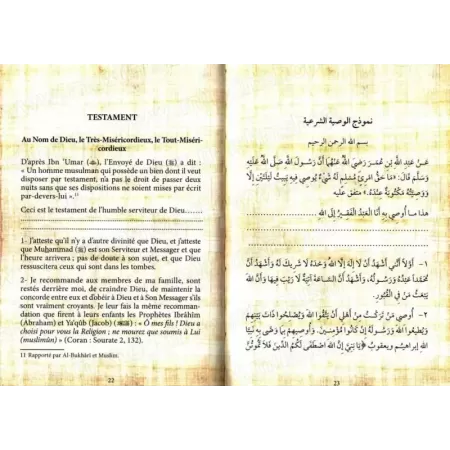 TESTAMENT
Au Nom de Dieu, le Très-Miséricordieux, le Tout-Miséri-
cordieux
D'après Ibn 'Umar (ﷺ), l'Envoyé de Dieu (ﷺ) a dit :
« Un homme musulman qui possède un bien dont il veut
disposer par testament, n'a pas le droit de passer deux
nuits sans que ses dispositions ne soient mises par écrit
par-devers-lui ».¹¹
Ceci est le testament de l'humble serviteur de Dieu
1- J'atteste qu'il n'y a d'autre divinité que Dieu, et j'atteste
que Muḥammad (ﷺ) est son Serviteur et Messager et que
l'heure arrivera ; pas de doute à son sujet, et que Dieu
ressuscitera ceux qui sont dans les tombes.
2- Je recommande aux membres de ma famille, sont
restés derrière moi, de craindre Dieu, de maintenir la
concorde entre eux et d'obéir à Dieu et à Son Messager s'ils
sont vraiment croyants. Je leur fais la même recomman-
dation que firent à leurs enfants les Prophètes Ibrâhîm
(Abraham) et Ya'qûb (Jacob) : « Ô mes fils ! Dieu a
choisi pour vous la Religion ; ne mourez que soumis à Lui
(muslimûn) » (Coran : Sourate 2, 132).
11 Rapporté par Al-Bukhârî et Muslim.
22
نموذج الوصية الشرعية
بسم الله الرحمن الرحيم
عَنْ عَبْدِ اللَّهِ بْنِ عُمَرَ رَضِيَ اللَّهُ عَنْهُمَا أَنَّ رَسُولَ اللَّهِ صَلَّى اللَّهُ عَلَيْهِ
وَسَلَّمَ قَالَ: «مَا حَقُّ امْرِئٍ مُسْلِمٍ لَهُ شَيْءٌ يُوصِي فِيهِ يَبِيتُ لَيْلَتَيْنِ إِلَّا
وَوَصِيَّتُهُ مَكْتُوبَةٌ عِنْدَهُ.» متفق عليه
هذا مـا أُوصِي بِهِ أَنَا العَبْدُ الفَقِيرُ إلَى اللهِ
١ – أَوَّلاً أَنَّنِي أَشْهَدُ أَنْ لَا إِلَهَ إِلَّا اللَّهُ وَحْدَهُ لَا شَرِيكَ لَهُ وَأَشْهَدُ أَنَّ
مُحَمَّداً عَبْدُهُ وَرَسُولُهُ وَأَشْهَدُ أَنَّ السَّاعَةَ آتِيَةٌ لَا رَيْبَ فِيهَا وَأَنَّ اللَّهَ
يَبْعَثُ مَنْ فِي الْقُبُورِ.
٢ – أُوصِي مَنْ تَرَكْتُ مِنْ أَهْلِي أَنْ يَتَّقُوا اللَّهَ وَيُصْلِحُوا ذَاتَ بَيْنِهِمْ
وَيُطِيعُوا اللَّهَ وَرَسُولَهُ إِنْ كَانُوا مُؤْمِنِينَ. وَأُوصِيهِمْ بِمَا وَصَّى بِهِ نَبِيُّ
اللَّهِ إِبْرَاهِيمُ وَيَعْقُوبُ ﴿يَا بَنِيَّ إِنَّ اللَّهَ اصْطَفَى لَكُمُ الدِّينَ فَلَا تَمُوتُنَّ
23